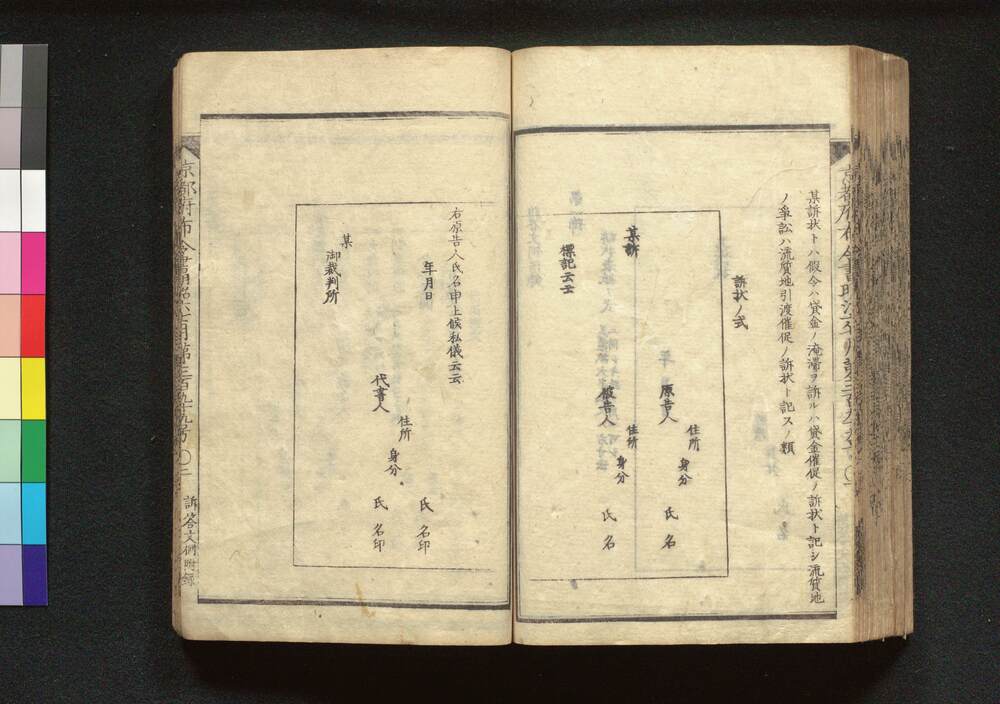 某訴状トハ假令ハ貸金ノ淹滞ヲ訴ルハ貸金催促ノ訴状ト記シ流質地
ノ爭訟ハ流質地引渡催促ノ訴状ト記スノ類
訴状ノ式
住所
原告人 身分 氏名
住所
某訴 被告人 身分 氏名
標記云云
右原告人氏名申上候私儀云云
年月日 氏名印
住所
代書人 身分 氏名印
某
御裁判所
京都府布令書明治六年
月第三百九十九号
〇二
訴答文例附録